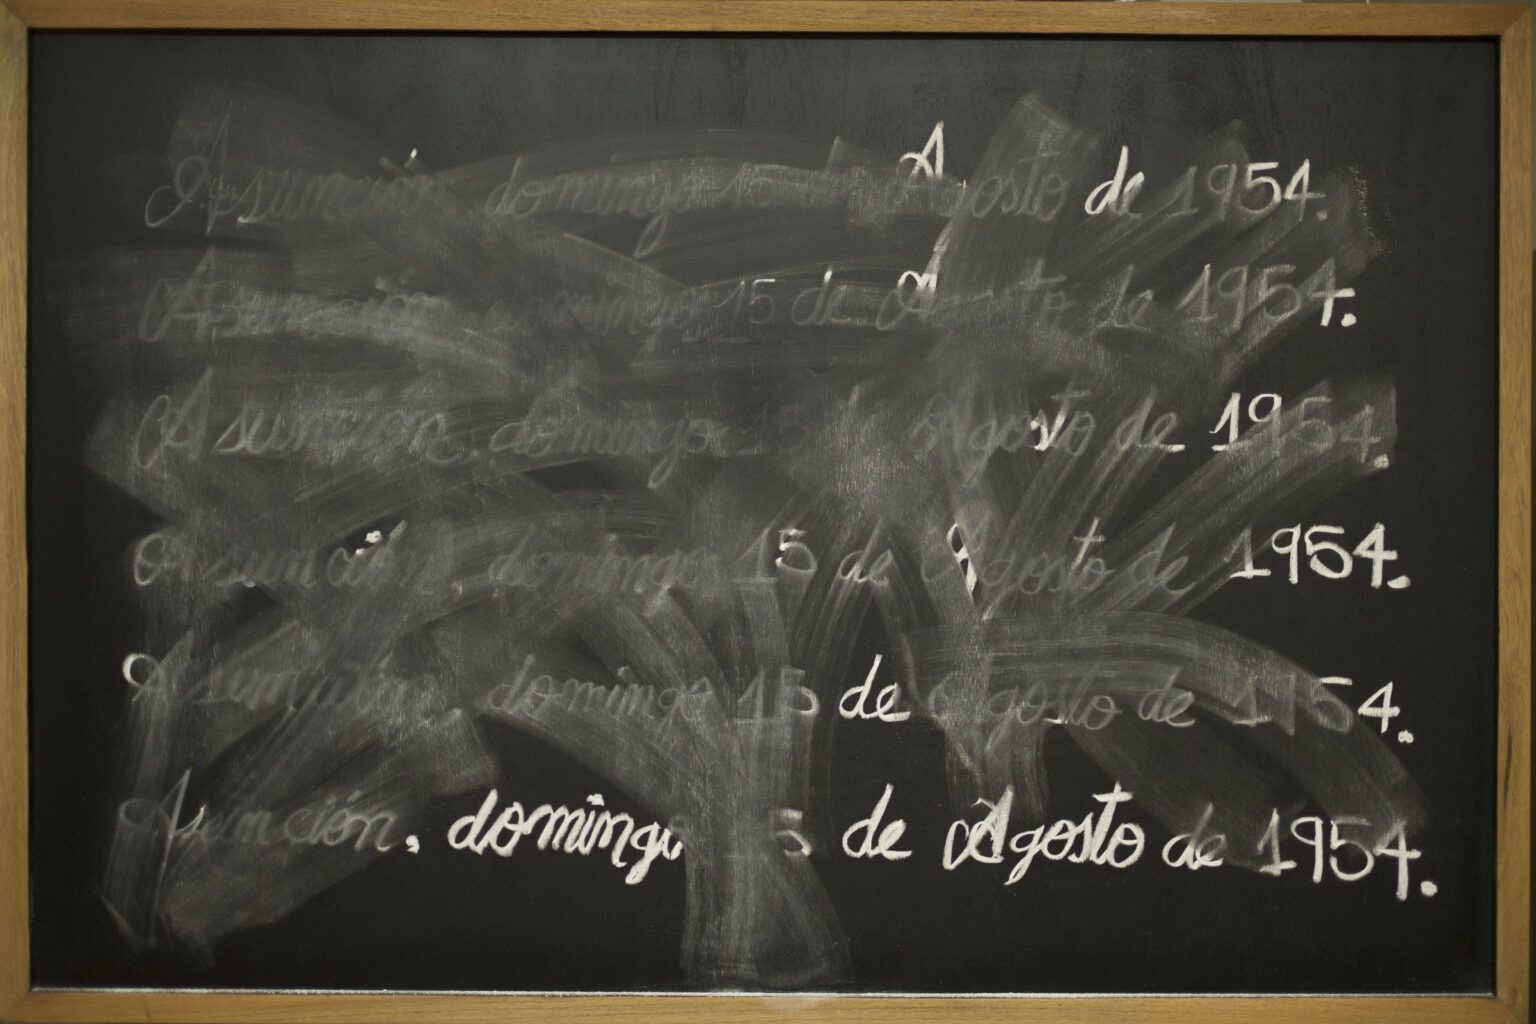 Asunción, domingo 15 de Agosto de 1954.
Asunción, domingo 15 de Agosto de 1954.
Asunción, domingo 15 de Agosto de 1954.
Asunción, domingo 15 de Agosto de 1954.
Asunción, domingo 15 de Agosto de 1954.
Asunción, domingo 15 de Agosto de 1954.